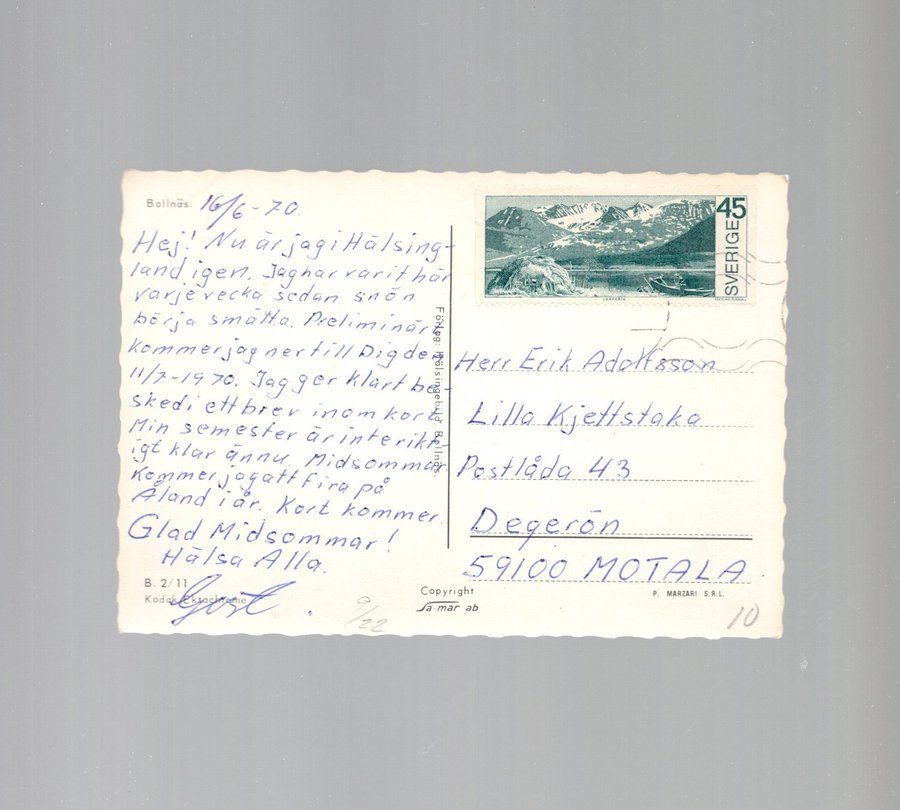 Bollnäs 16/6-70.
Hej! Nu är jag i Hälsing-
land igen. Jag har varit här
varje vecka sedan snön
börja smälta. Preliminärt
kommer jag ner till Digden
11/7-1970. Jag ger klart be-
sked i ett brev inom kort.
Min semester är inte rikt-
igt klar ännu. Midsommar
kommer jag att fira på
Åland i år. Kort kommer.
Glad Midsommar!
Hälsa Alla.
B. 2/11
Kodak Ektachrome
9/22
Förlag: Hälsingebild, Bollnäs.
Copyright
Sa-mar ab
45
SVERIGE
Herr Erik Adolfsson
Lilla Kjettstaka
Postlåda 43
Degerön
59100 MOTALA.
P. MARZARI S.R.L.
10